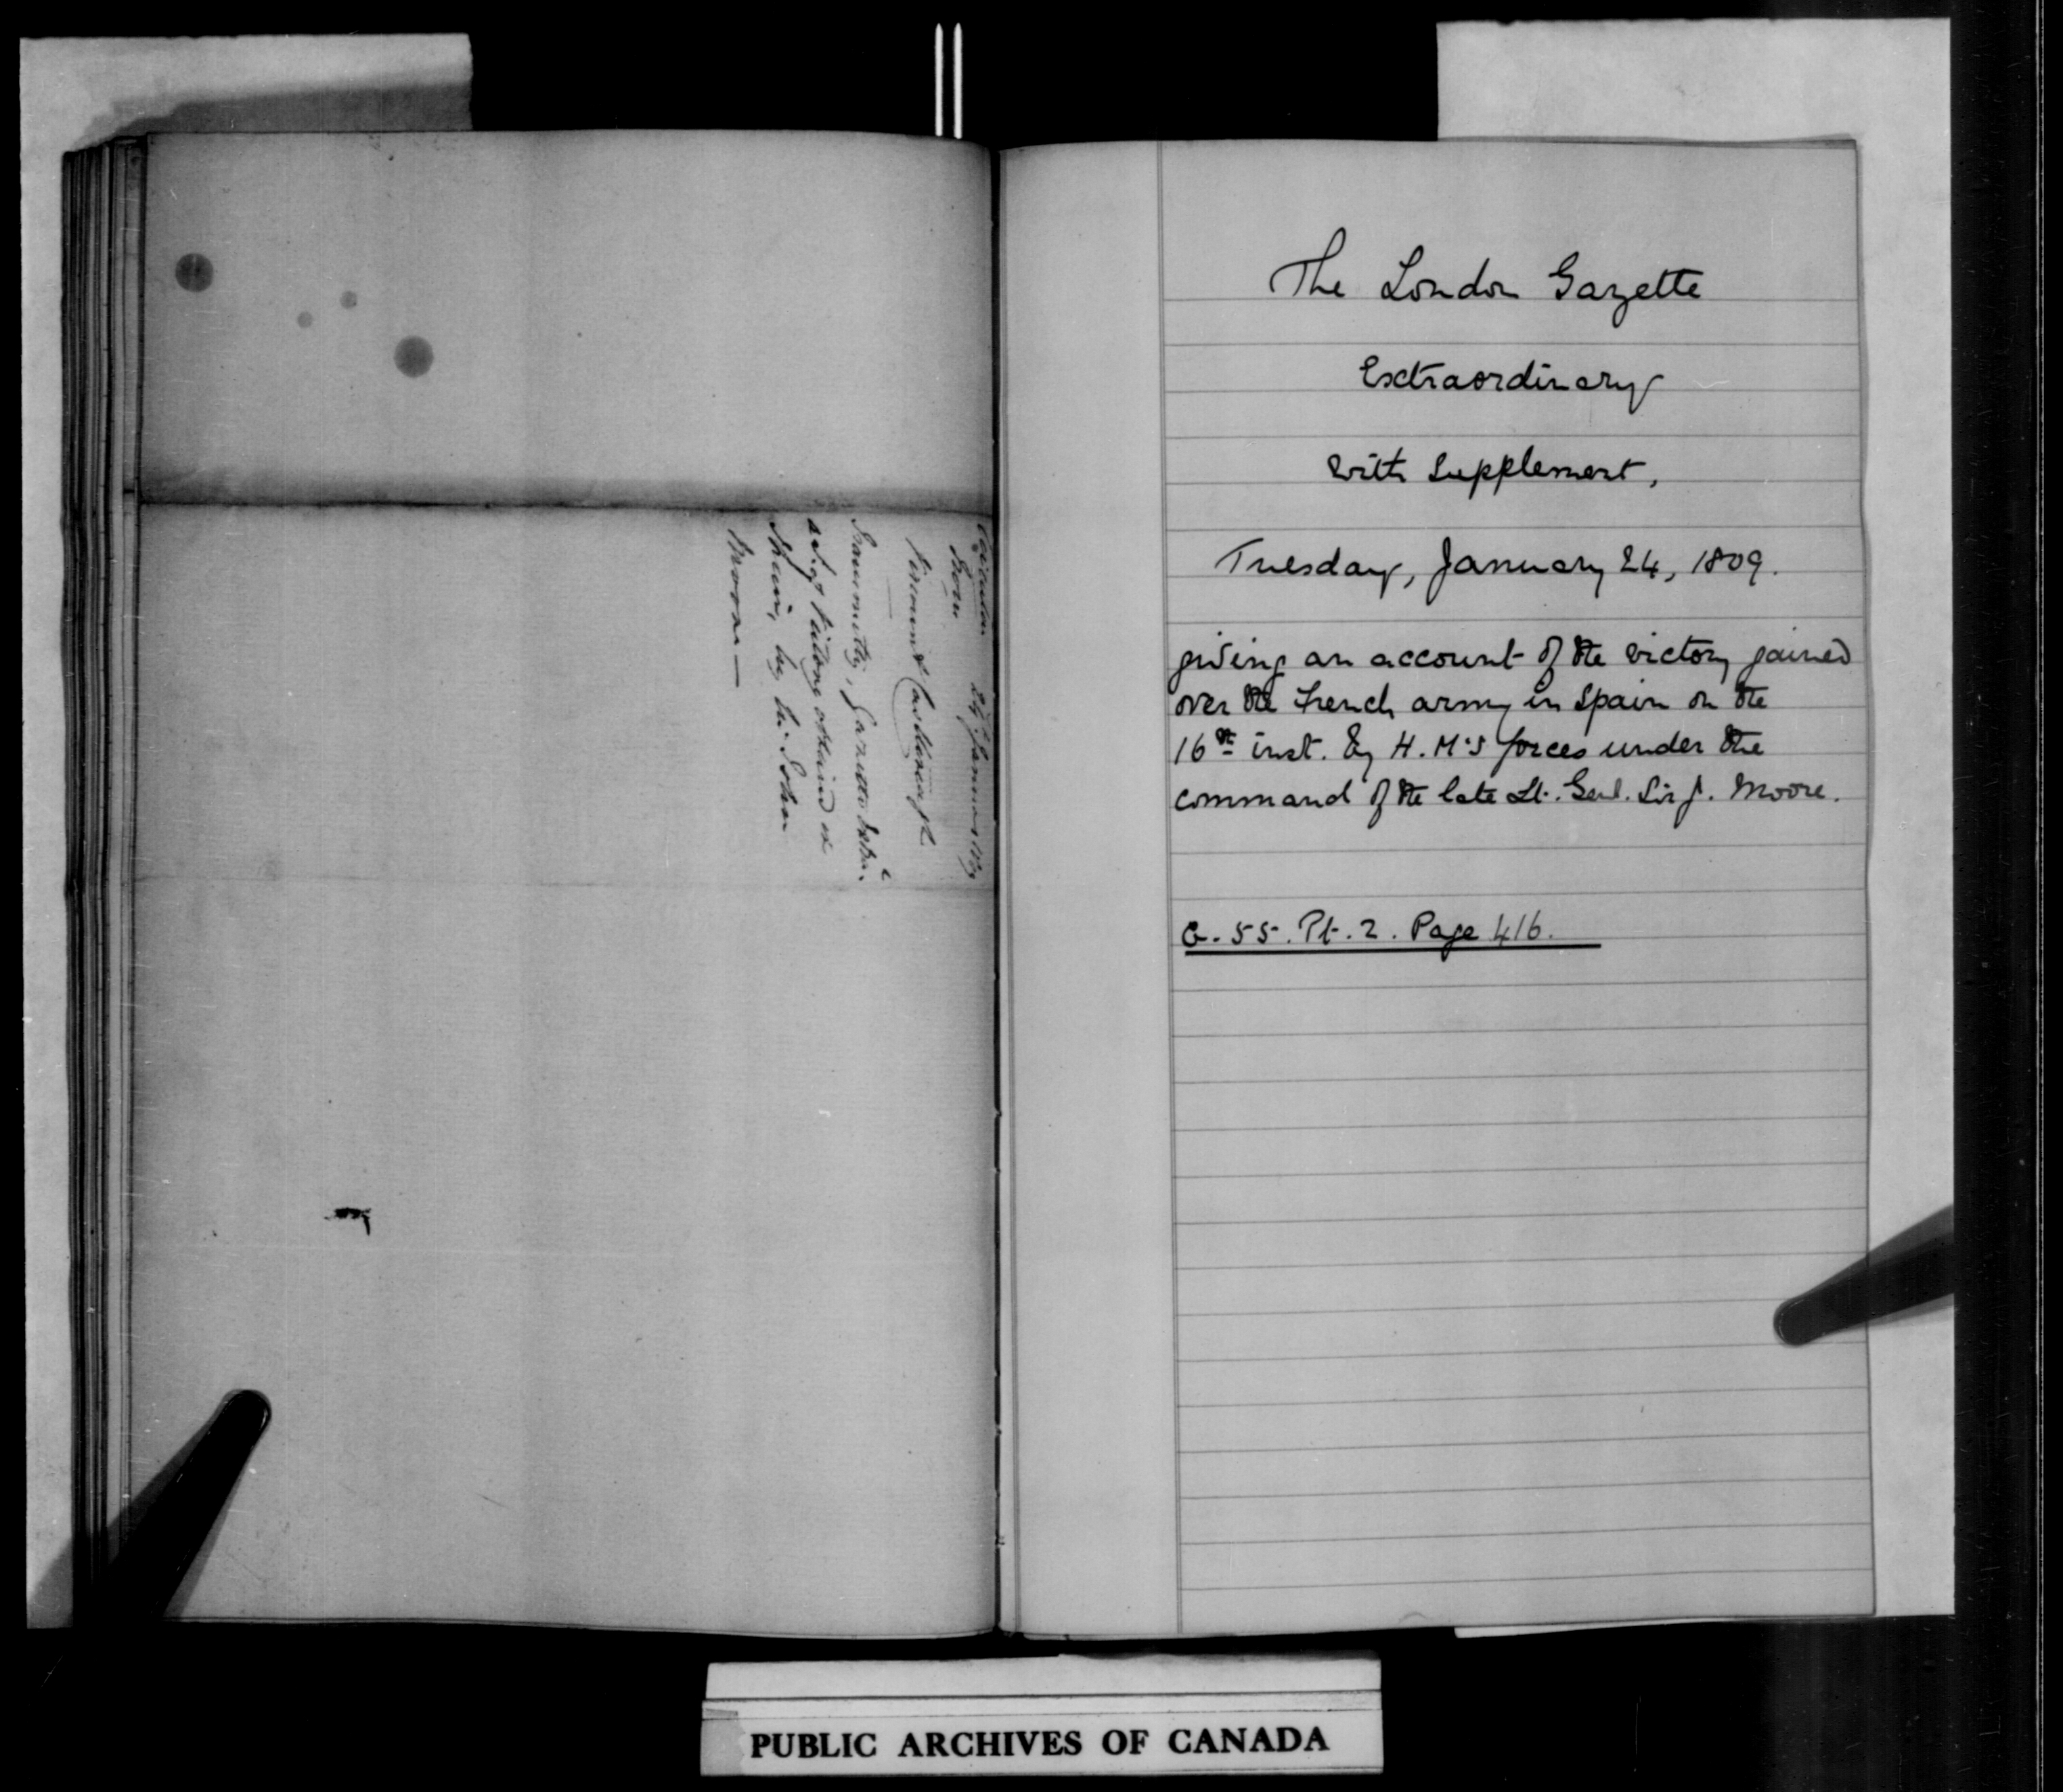 Circular 24 January 1809
From
Viscount Castlereagh
Transmitting, Gazette Extra.
of Victory obtained in
Spain, by Sir John
Moore —
The London Gazette
Extraordinary
with Supplement,
Tuesday, January 24, 1809.
giving an account of the victory gained
over the French army in Spain on the
16th inst. by H. M's forces under the
command of the late Lt. Genl. Sir J. Moore.
G. 55. Pt. 2. Page 416.
PUBLIC ARCHIVES OF CANADA